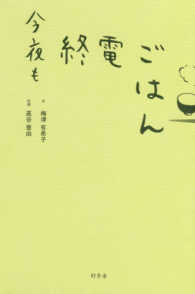 今夜も
終電
ごはん
梅津有希子
高谷亜由
幻冬舎